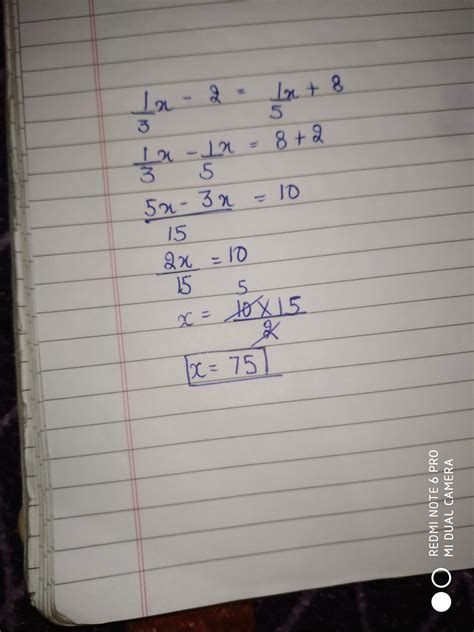 1/3 x - 2 = 1/5 x + 8
1/3 x - 1/5 x = 8 + 2
5x - 3x / 15 = 10
2x / 15 = 10
5
x = 10 × 15 / 2
x = 75
REDMI NOTE 6 PRO
MI DUAL CAMERA